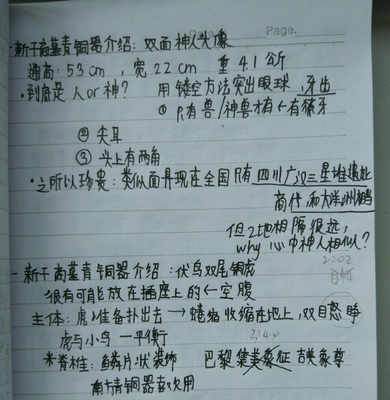 Page.
一新干商墓青铜器介绍：双面神人头像
通高：53cm，宽22cm 重4.1公斤
·到底是人or神？ 用镂空方法突出眼球，牙出
① 只有兽/神兽才有←有獠牙
② 尖耳
③ 头上有两角
·之所以珍贵：类似面具现在全国只有四川广汉三星堆遗址
商代 和大洋洲
但2地相隔很远，
why 心中神人相似？
2:02
一新干商墓青铜器介绍：伏鸟双尾铜虎
很有可能放在插座上的←空腹
主体：虎：准备扑出去→蜷缩收缩在地上，双目怒睁
虎与小鸟一平衡
脊椎：鳞片状装饰 巴黎集美 象征 吉美象尊
南方青铜器喜欢用